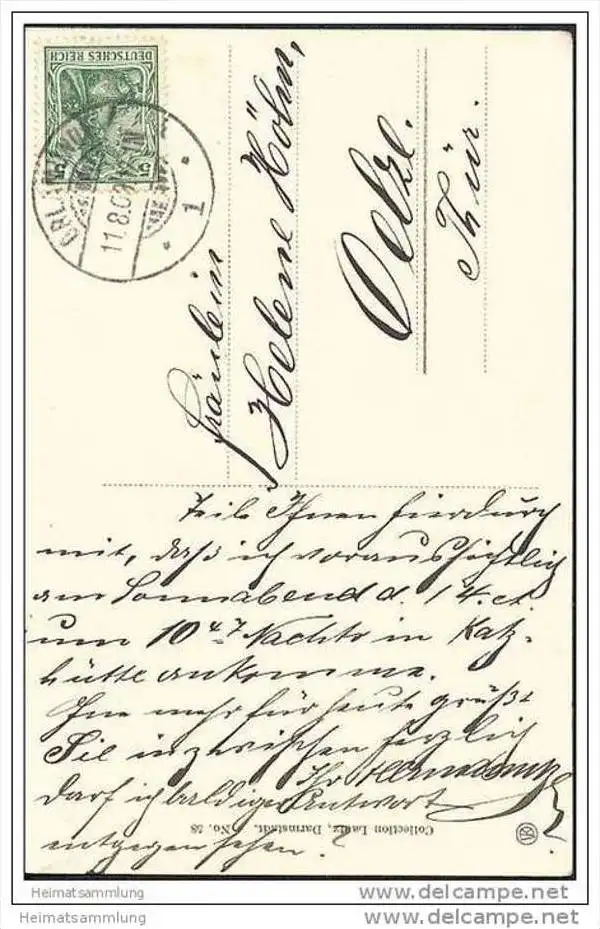 DEUTSCHES REICH
5 5
11.8.08
* 1 *
Fräulein
Helene Höhn,
Oelze.
Thür.
Teile Ihnen hierdurch
mit, daß ich voraussichtlich
am Sonnabend d. 14. ct.
um 10 47 Nachts in Katz-
hütte ankomme.
mehr für heute grüßt
Sie inzwischen herzlich
Ihr
Darf ich baldiger Antwort
entgegen sehen.?
Collection Lautz, Darmstadt. No. 58
Heimatsammlung
Heimatsammlung
www.delcampe.net
www.delcampe.net